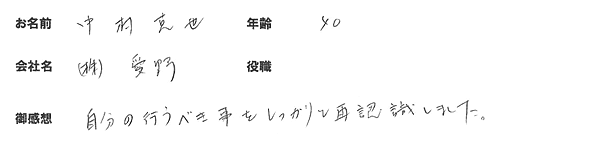 お名前 中村克也 年齢 40
会社名 (株)愛野 役職
御感想 自分の行うべき事をしっかりと再認識しました。